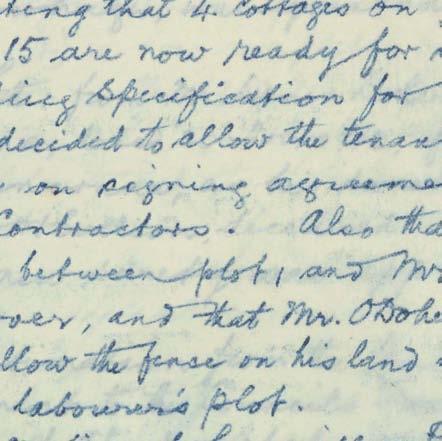 ting that 4 cottages on
15 are now ready for
ding specification for
decided to allow the tenan
on signing agreeme
Contractors. Also tha
between plot 1 and Mr
over, and that Mr. O'Dohe
llow the fence on his land
labourer's plot.